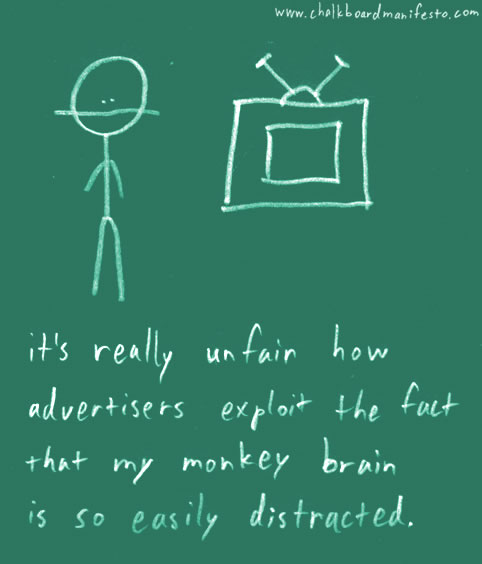 www.chalkboardmanifesto.com
it's really unfair how
advertisers exploit the fact
that my monkey brain
is so easily distracted.